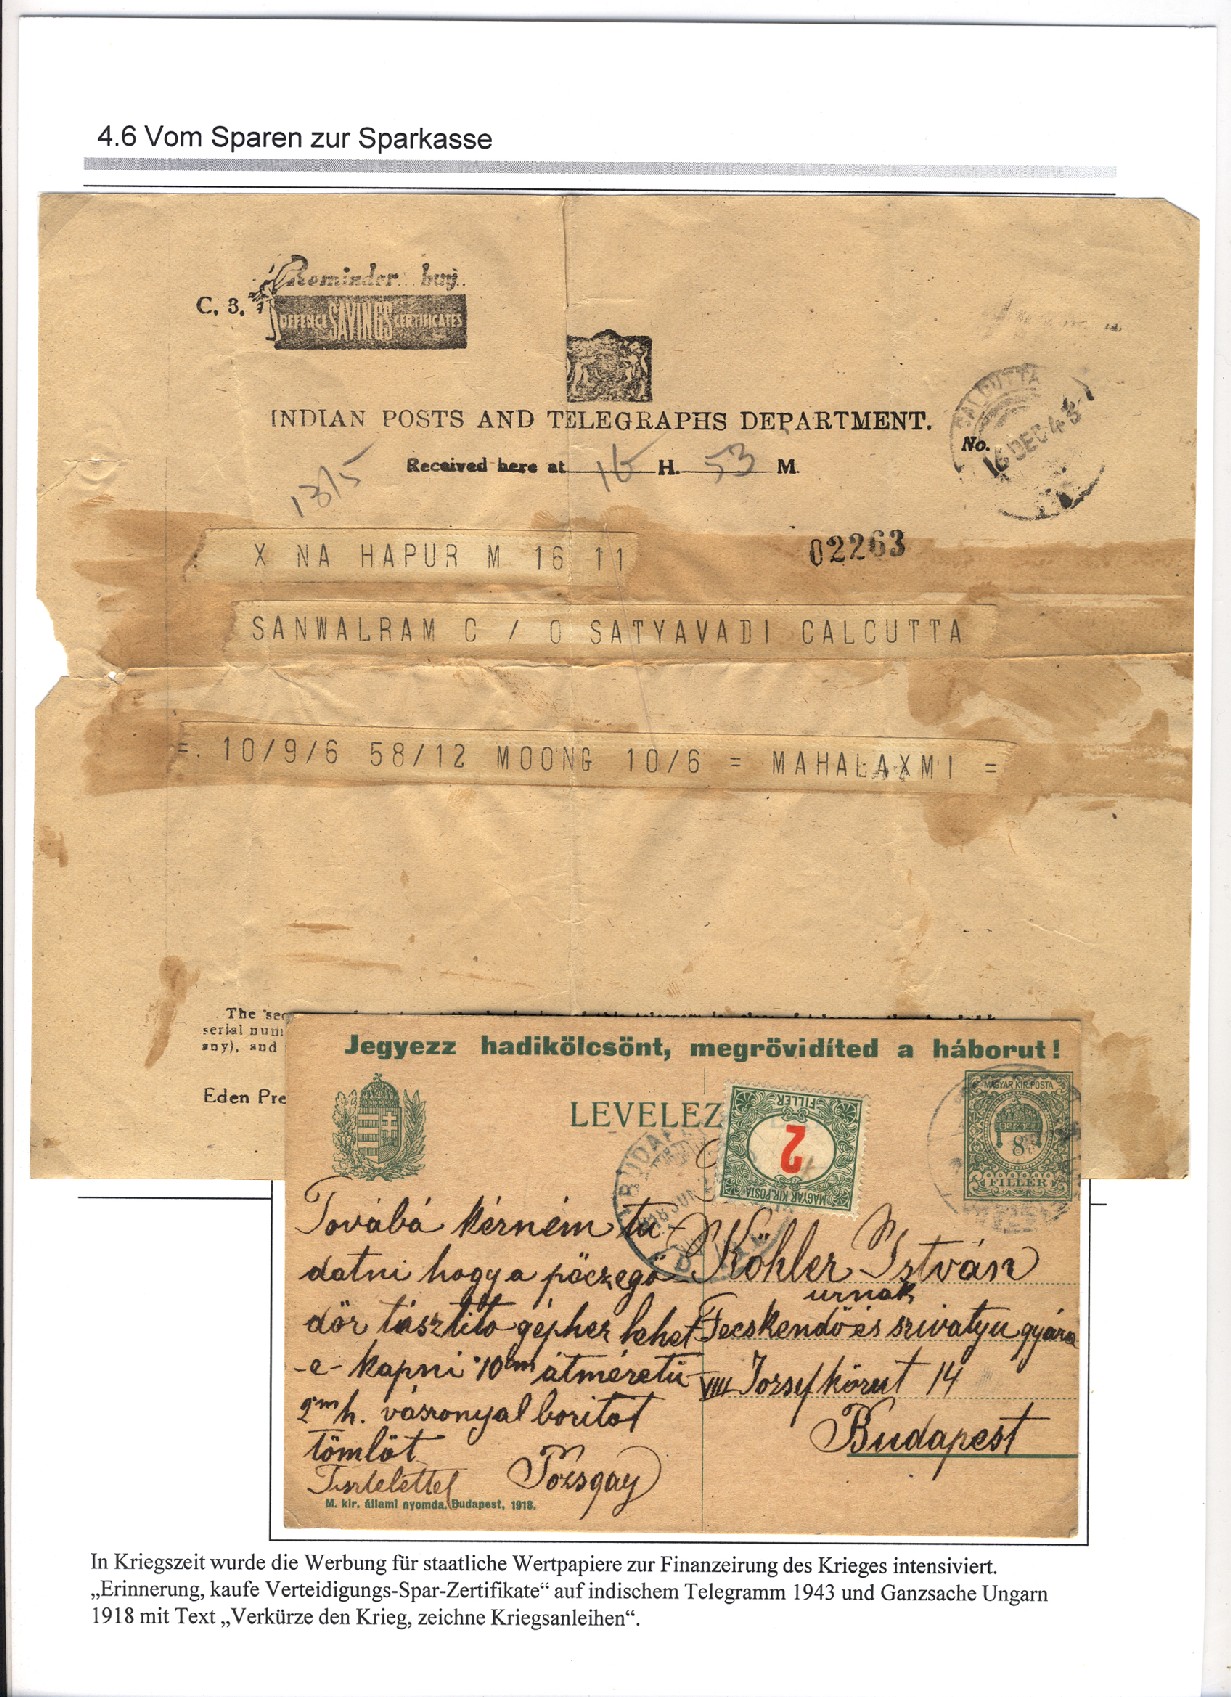 4.6 Vom Sparen zur Sparkasse
Reminder buy
C. 3.
DEFENCE SAVINGS CERTIFICATES
INDIAN POSTS AND TELEGRAPHS DEPARTMENT.
CALCUTTA
16 DEC 43
No.
Received here at 16 H. 53 M.
13/5
X NA HAPUR M 16 11
02263
SANWALRAM C / O SATYAVADI CALCUTTA
=. 10/9/6 58/12 MOONG 10/6 = MAHALAXMI =
The
serial num
any), and
Eden Pre
Jegyezz hadikölcsönt, megrövidíted a háborut!
MAGYAR KIR. POSTA
8
FILLER
LEVELEZ
FILLÉR
2
MAGYAR KIR. POSTA
BUDAP
Továbá kérném tu-
datni hogy a pöczegö
dör tisztito géphez lehet
-e- kapni 10 cm átméretü
2 m h. vászonyal boritot
tömlöt
Tisztelettel Pozsgay
Köhler István
urnak
Fecskendö és szivatyu gyára
VIII Jozsef körut 14
Budapest
M. kir. állami nyomda. Budapest, 1918.
In Kriegszeit wurde die Werbung für staatliche Wertpapiere zur Finanzeirung des Krieges intensiviert.
„Erinnerung, kaufe Verteidigungs-Spar-Zertifikate“ auf indischem Telegramm 1943 und Ganzsache Ungarn
1918 mit Text „Verkürze den Krieg, zeichne Kriegsanleihen“.